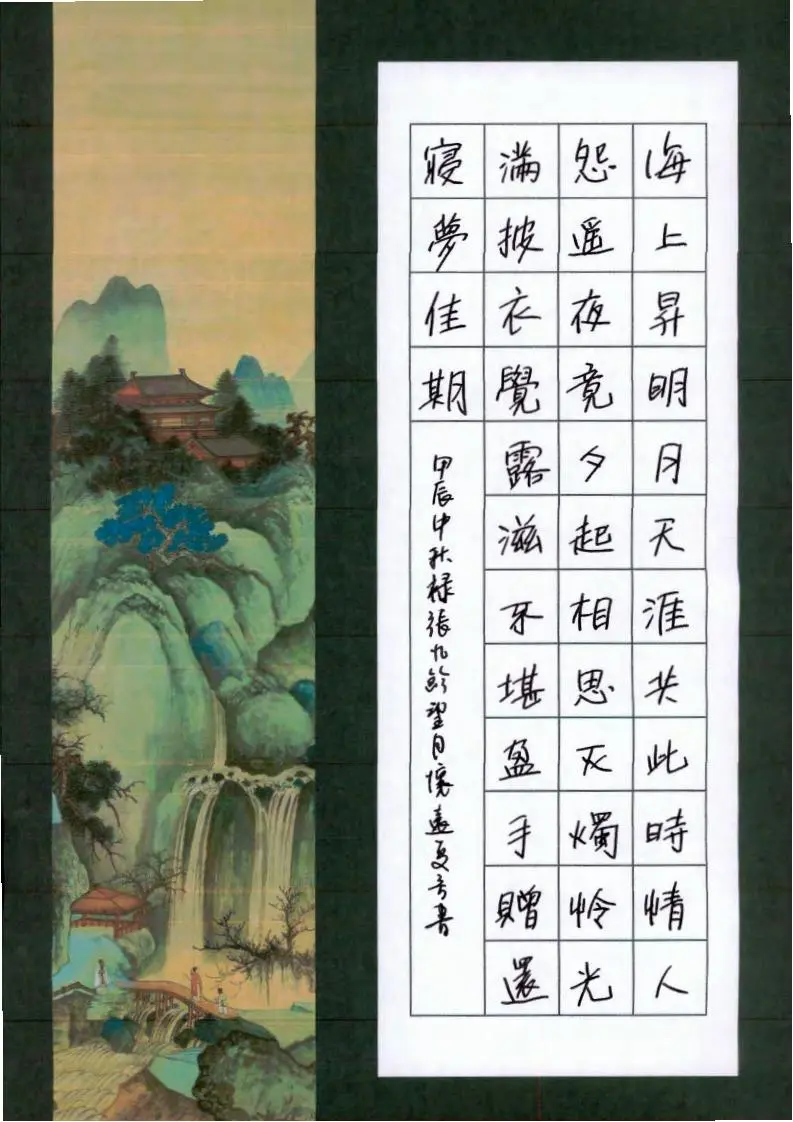 海上昇明月天涯共此時情人
怨遥夜竟夕起相思灭燭怜光
滿披衣覺露滋不堪盈手贈還
寢夢佳期
甲辰中秋録張九齡望月懷遠夏言書